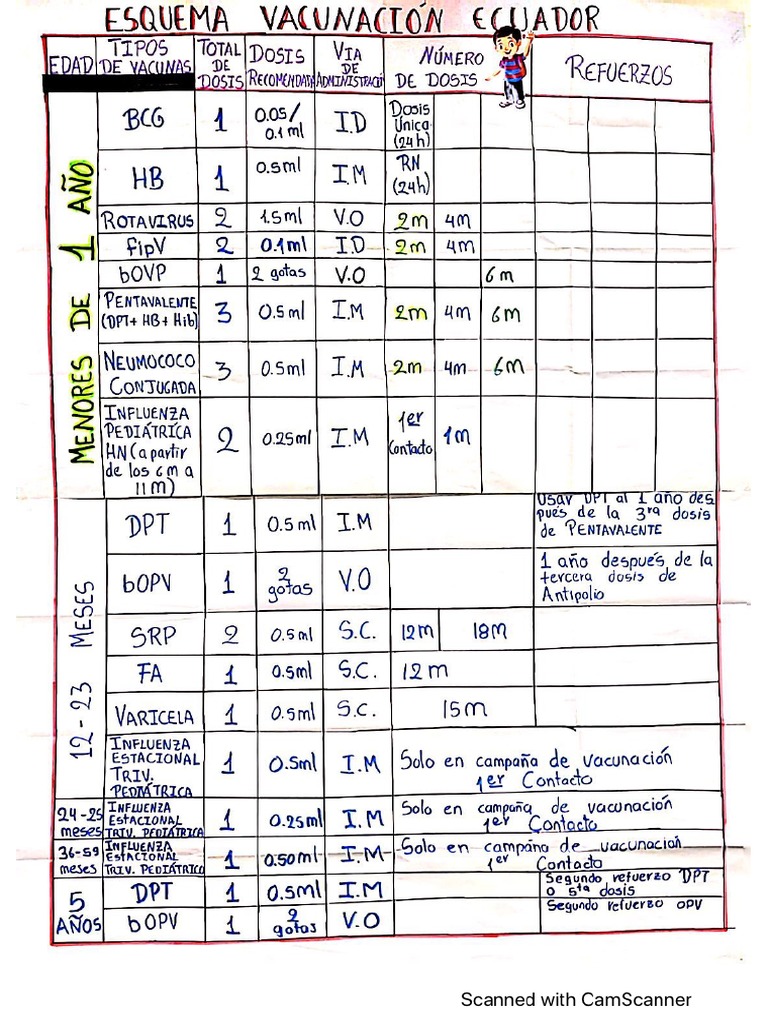 ESQUEMA VACUNACIÓN ECUADOR
EDAD TIPOS DE VACUNAS TOTAL DE DOSIS DOSIS RECOMENDADA VIA DE ADMINISTRACIÓN NÚMERO DE DOSIS REFUERZOS
MENORES DE 1 AÑO
BCG 1 0.05/ 0.1 ml I.D Dosis Única (24h)
HB 1 0.5ml I.M RN (24h)
ROTAVIRUS 2 1.5ml V.O 2m 4m
fipV 2 0.1ml I.D 2m 4m
bOVP 1 2 gotas V.O 6m
PENTAVALENTE (DPT+ HB + Hib) 3 0.5ml I.M 2m 4m 6m
NEUMOCOCO CONJUGADA 3 0.5ml I.M 2m 4m 6m
INFLUENZA PEDIÁTRICA HN (a partir de los 6m a 11m) 2 0.25ml I.M 1er Contacto 1m
12 - 23 MESES
DPT 1 0.5ml I.M Usar DPT al 1 año des pués de la 3ra dosis de PENTAVALENTE
bOPV 1 2 gotas V.O 1 año después de la tercera dosis de Antipolio
SRP 2 0.5ml S.C. 12m 18m
FA 1 0.5ml S.C. 12m
VARICELA 1 0.5ml S.C. 15m
INFLUENZA ESTACIONAL TRIV. PEDIÁTRICA 1 0.5ml I.M Solo en campaña de vacunación 1er Contacto
24-25 meses INFLUENZA ESTACIONAL TRIV. PEDIÁTRICA 1 0.25ml I.M Solo en campaña de vacunación 1er Contacto
36-59 meses INFLUENZA ESTACIONAL TRIV. PEDIÁTRICO 1 0.50ml I.M Solo en campaña de vacunación 1er Contacto
5 AÑOS
DPT 1 0.5ml I.M Segundo refuerzo DPT o 5ta dosis
bOPV 1 2 gotas V.O Segundo refuerzo OPV
Scanned with CamScanner